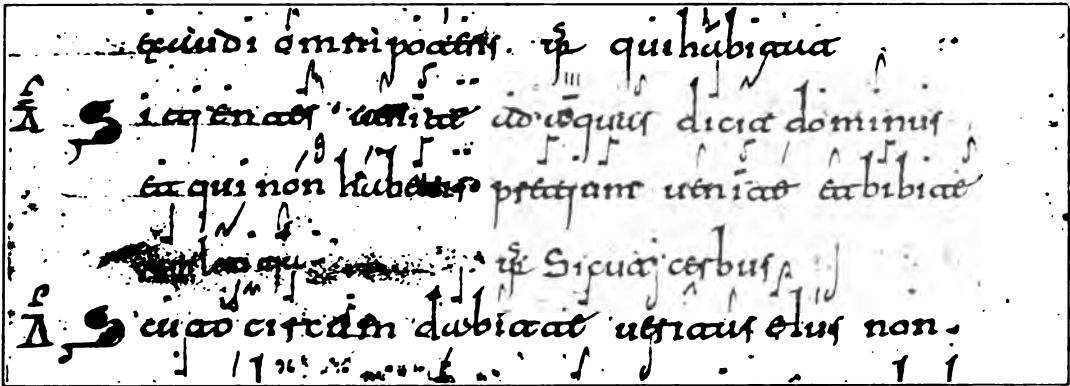 omnipotentis. ps qui habitat
A Sitientes uenite ad aquas dicit dominus
et qui non habetis pretium uenite et bibite
ps Sicut cerbus
A Scuto circumdabit te ueritas eius non